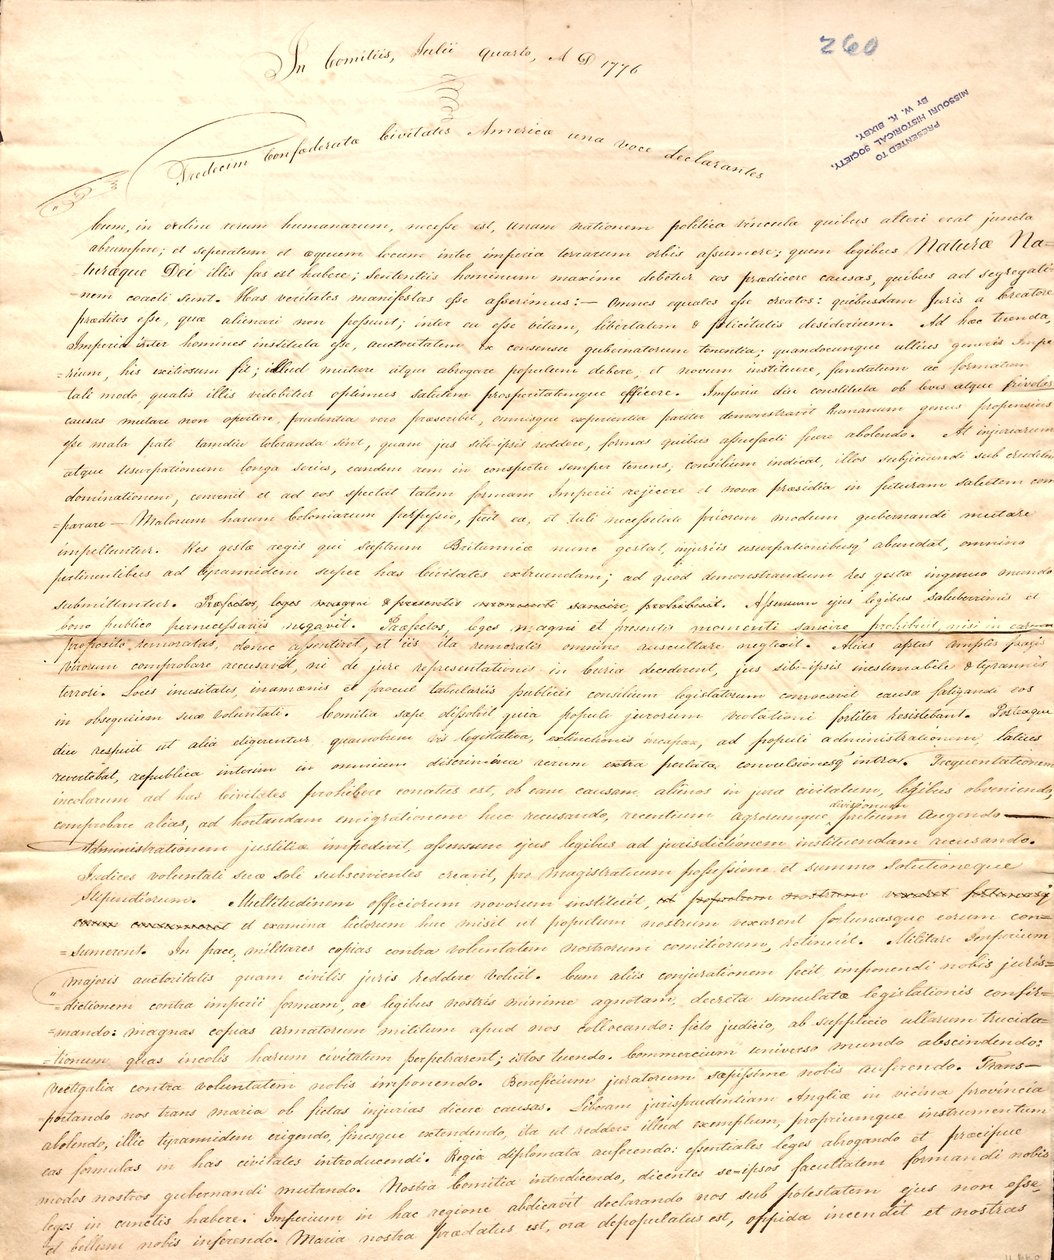 260
PRESENTED TO
MISSOURI HISTORICAL SOCIETY,
BY W. K. BIXBY.
In Comitiis, Julii quarto, A D 1776
Tredecim Confœderatæ Civitates Americæ una voce declarantes
Cum, in ordine rerum humanarum, necesse est, unam nationem politica vincula quibus alteri erat juncta
abrumpere; et seperatem et æquum locum inter imperia terrarum orbis assumere; quem legibus Naturæ Na-
-turæque Dei illis fas est habere; sententiis hominum maxime debetur eos prædicere causas, quibus ad segregatio
nem coacti sunt. Has veritates manifestas esse asserimus:— Omnes equales esse creatos: quibusdam Juris a Creatore
præditos esse, quæ alienari non possunt; inter ea esse vitam, libertatem & felicitatis desiderium. Ad hæc tuenda,
Imperia inter homines instituta esse, auctoritatem ex consensu gubernatorum tenentia; quandocunque ullius generis Impe
=rium, his exitiosum fit; illud mutare atque abrogare populum debere, et novum instituere, fundatum ac formatum
tali modo, qualis illis videbitur optimus salutem prosperitatemque efficere. Imperia diu constituta ob leves atque frivolas
causas mutare non oportere, prudentia vero præscribit, omnisque experientia pariter demonstravit humanum genus propensius
esse mala pati tamdiu toleranda sint, quam jus sibi-ipsis reddere, formas quibus assuefacti fuere abolendo. At injuriarum
atque usurpationum longa series, eandem rem in conspectu semper tenens, consilium indicat, illos subjiciundi sub crudelem
dominationem, convenit et ad eos spectat talem formam Imperii rejicere et nova præsidia in futuram salutem com
=parare — Malorum harum Coloniarum perpessio, fuit ea, et tali necessitate priorem modum gubernandi mutare
impelluntur. Res gestæ regis qui sceptrum Britanniæ nunc gestat, injuriis usurpationibusq' abundat, omnino
pertinentibus ad tyrannidem super has Civitates extruendam; ad quod demonstrandum res gestæ ingenuo mundo
submittuntur. Præfectos, leges magni & presentis momenti sancire, prohibuit. Assensum ejus legibus saluberrimis et
bono publico pernecessariis negavit. Præfectos, leges magni et presentis momenti sancire prohibuit nisi in earum
proposito, remoratas, donec assentiret, et iis ita remoratis omnino auscultare neglexit. Alias aptas amplis pagis
virorum comprobare recusavit, ni de jure representationis in Curia decederent, jus sibi-ipsis inestimabile & tyrannis
terrori. Locis inusitatis, inamænis et procul tabulariis publicis consilium legislatorum convocavit causa fatigandi eos
in obsequium suæ voluntati. Comitia sæpe dissolvit quia populi jurorum violationi fortiter resistebant. Posteaque
diu respuit ut alia eligerentur, quamobrem vis legislativa, extinctionis incapax, ad populi administrationem, latius
revertebat, republica interim in omnium discrimina rerum extra perlata, convulsionesq' intra. Frequentationem
incolarum ad has Civitates prohibere conatus est, ob eam causam, alienos in jura civitatum, legibus obveniendo,
comprobare alias, ad hortandam emigrationem huc recusando, recentium agrorumque divisionum pretium augendo —
Administrationem justitiæ impedivit, assensum ejus legibus ad jurisdictionem instituendam recusando.
Judices voluntati suæ sole subservientes creavit, pro magistratuum possessione et summo solutioneque
Stipendiorum. Multitudinem officiorum novorum instituit, ut populum nostrum vexaret fortunasq'
et examina lictorum huc misit ut populum nostrum vexarent fortunasque eorum con-
=sumerent. In pace, militares copias contra voluntatem nostrorum comitiorum, retinuit. Militare Imperium
majoris auctoritatis quam civilis juris reddere voluit. Cum aliis conjurationem fecit imponendi nobis juris=
=dictionem contra imperii formam, ac legibus nostris minime agnotam, decreta simulatæ legislationis confir-
=mando: magnas copias armatorum militum apud nos collocando: ficto judicio, ab supplicio ullarum trucida-
=tionum, quas incolis harum civitatum perpetrarent; istos tuendo. Commercium universo mundo abscindendo:
Vectigalia contra voluntatem nobis imponendo. Beneficium juratorum sæpissime nobis auferendo. Trans—
=portando nos trans maria ob fictas injurias dicere causas. Liberam jurisprudentiam Angliæ in vicina provincia
abolendo, illic tyrannidem erigendo, finesque extendendo, ita ut reddere illud exemplum, propriumque instrumentum
eas formulas in has civitates introducendi. Regia diplomata auferendo: essentiales leges abrogando et præcipue
modos nostros gubernandi mutando. Nostra Comitia interdicendo, dicentes se=ipsos facultatem formandi nobis
leges in cunctis habere. Imperium in hac regione abdicavit declarando nos sub protestatem ejus non esse,
et bellum nobis inferendo. Maria nostra prædatus est, ora depopulatus est, oppida incendit et nostras